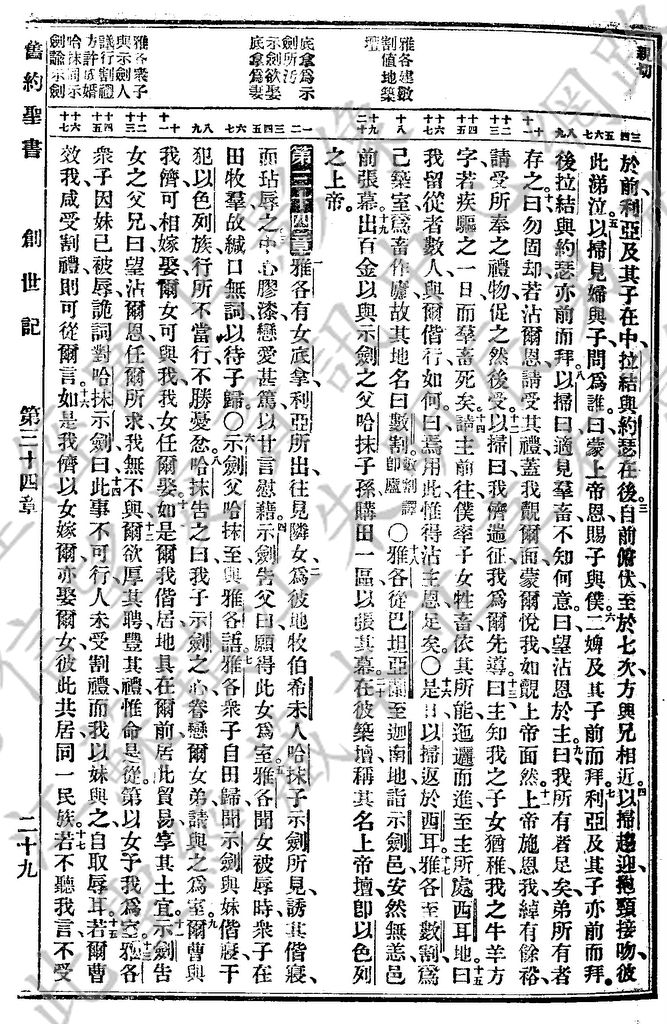 親切
雅各建數
割值地築
壇
底拿爲示
劍所汚
示劍欲娶
底拿爲妻
雅各衆子
與示劍人
議行割禮
方許成婚
哈抹同示
劍諭示劍
於前利亞及其子在中拉結與約瑟在後自前俯伏至於七次方與兄相近以掃趨迎抱頸接吻彼
此涕泣以掃見婦與子問爲誰曰蒙上帝恩賜子與僕二婢及其子前而拜利亞及其子亦前而拜
後拉結與約瑟亦前而拜以掃曰適見羣畜不知何意曰望沾恩於主曰我所有者足矣弟所有者
存之曰勿固却若沾爾恩請受其禮蓋我覿爾面蒙爾悅我如覿上帝面然上帝施恩我綽有餘裕
請受所奉之禮物促之然後受以掃曰我儕遄征我爲爾先導曰主知我之子女猶稚我之牛羊方
字若疾驅之一日而羣畜死矣請主前往僕率子女牲畜依其所能迤邐而進至主所處西耳地曰
我留從者數人與爾偕行如何曰焉用此惟得沾主恩足矣○是日以掃返於西耳雅各至數割爲
己築室爲畜作廬故其地名曰數割數割譯卽廬○雅各從巴坦亞蘭至迦南地詣示劍邑安然無恙邑
前張幕出百金以與示劍之父哈抹子孫購田一區以張其幕在彼築壇稱其名上帝壇卽以色列
之上帝。
第三十四章雅各有女底拿利亞所出往見隣女爲彼地牧伯希未人哈抹子示劍所見誘其偕寢
而玷辱之中心膠漆戀愛甚篤以甘言慰藉示劍告父曰願得此女爲室雅各聞女被辱時衆子在
田牧羣故緘口無詞以待子歸○示劍父哈抹至與雅各語雅各衆子自田歸聞示劍與妹偕寢干
犯以色列族行所不當行不勝憂忿哈抹告之曰我子示劍之心眷戀爾女弟請與之爲室爾曹與
我儕可相嫁娶爾女可與我我女任爾娶如是爾我偕居地具在爾前居此貿易享其土宜示劍告
女之父兄曰望沾爾恩任爾所求我無不與爾欲厚其聘豐其禮惟命是從第以女子我爲室雅各
衆子因妹已被辱詭詞對哈抹示劍曰此事不可行人未受割禮而我以妹與之自取辱耳若爾曹
效我咸受割禮則可從爾言如是我儕以女嫁爾亦娶爾女彼此共居同一民族若不聽我言不受
舊約聖書　創世記　第三十四章　二十九